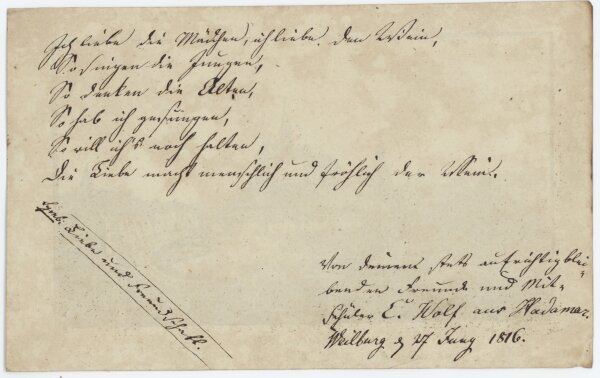 Ich liebe die Mädchen, ich liebe den Wein,
So singen die Jungen,
So denken die Alten,
So hab ich gesungen,
So will ich's noch halten,
Die Liebe macht menschlich und fröhlich der Wein.
Symb: Liebe und Freundschaft.
Von deinem stets aufrichtig blei-
benden Freunde und Mit-
schüler C. Wolf aus Hadamar.
Weilburg d 27 Juny 1816.